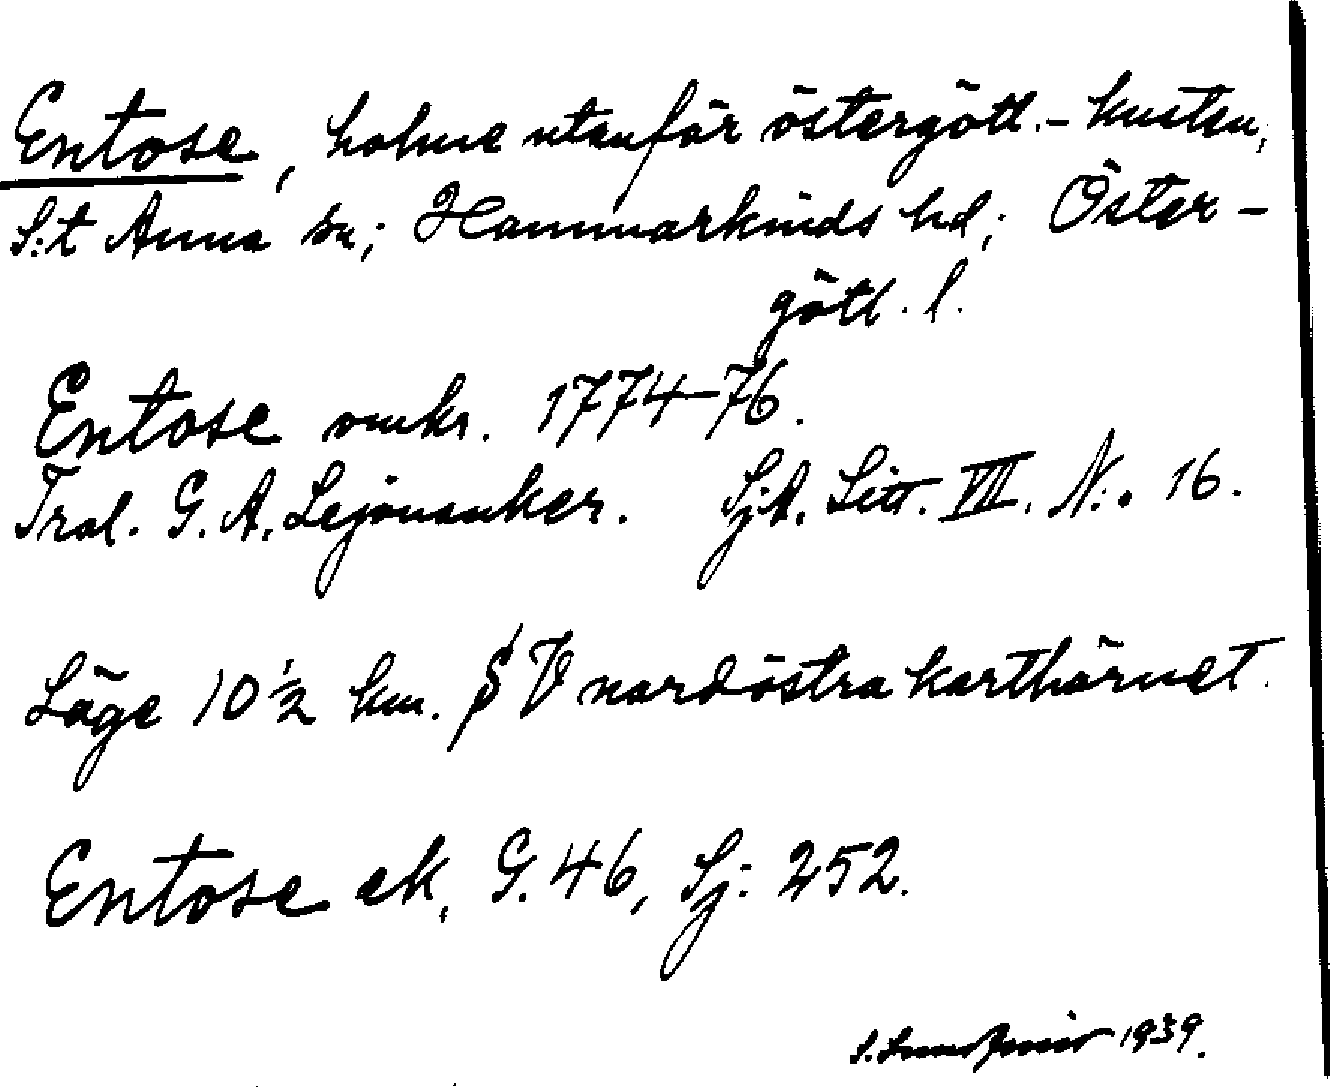 Entose, holme utanför östergötl.-kusten,
S:t Anna sn; Hammarkinds hd; Öster-
götl. l.
Entose omkr. 1774-76.
Trol. G. A. Lejonanker. Sj.A. Litt. VII. N:o 16.
Läge 10 1/2 km. S V nordöstra karthörnet.
Entose ek, G. 46, Sj: 252.
1939.